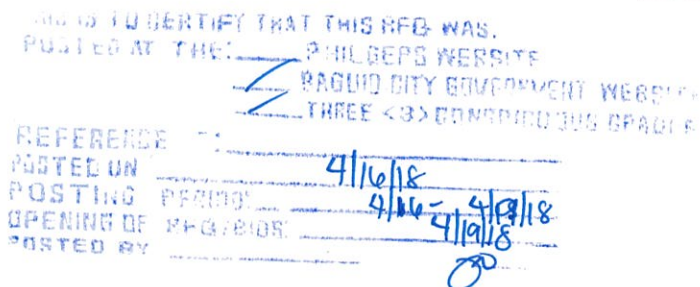 THIS IS TO CERTIFY THAT THIS RFQ WAS.
POSTED AT THE: PHILGEPS WEBSITE
BAGUIO CITY GOVERNMENT WEBSITE
THREE <3> CONSPICUOUS
REFERENCE :
POSTED ON 4/16/18
POSTING PERIOD: 4/16 - 4/18/18
OPENING OF RFQ/BIDS: 4/19/18
POSTED BY